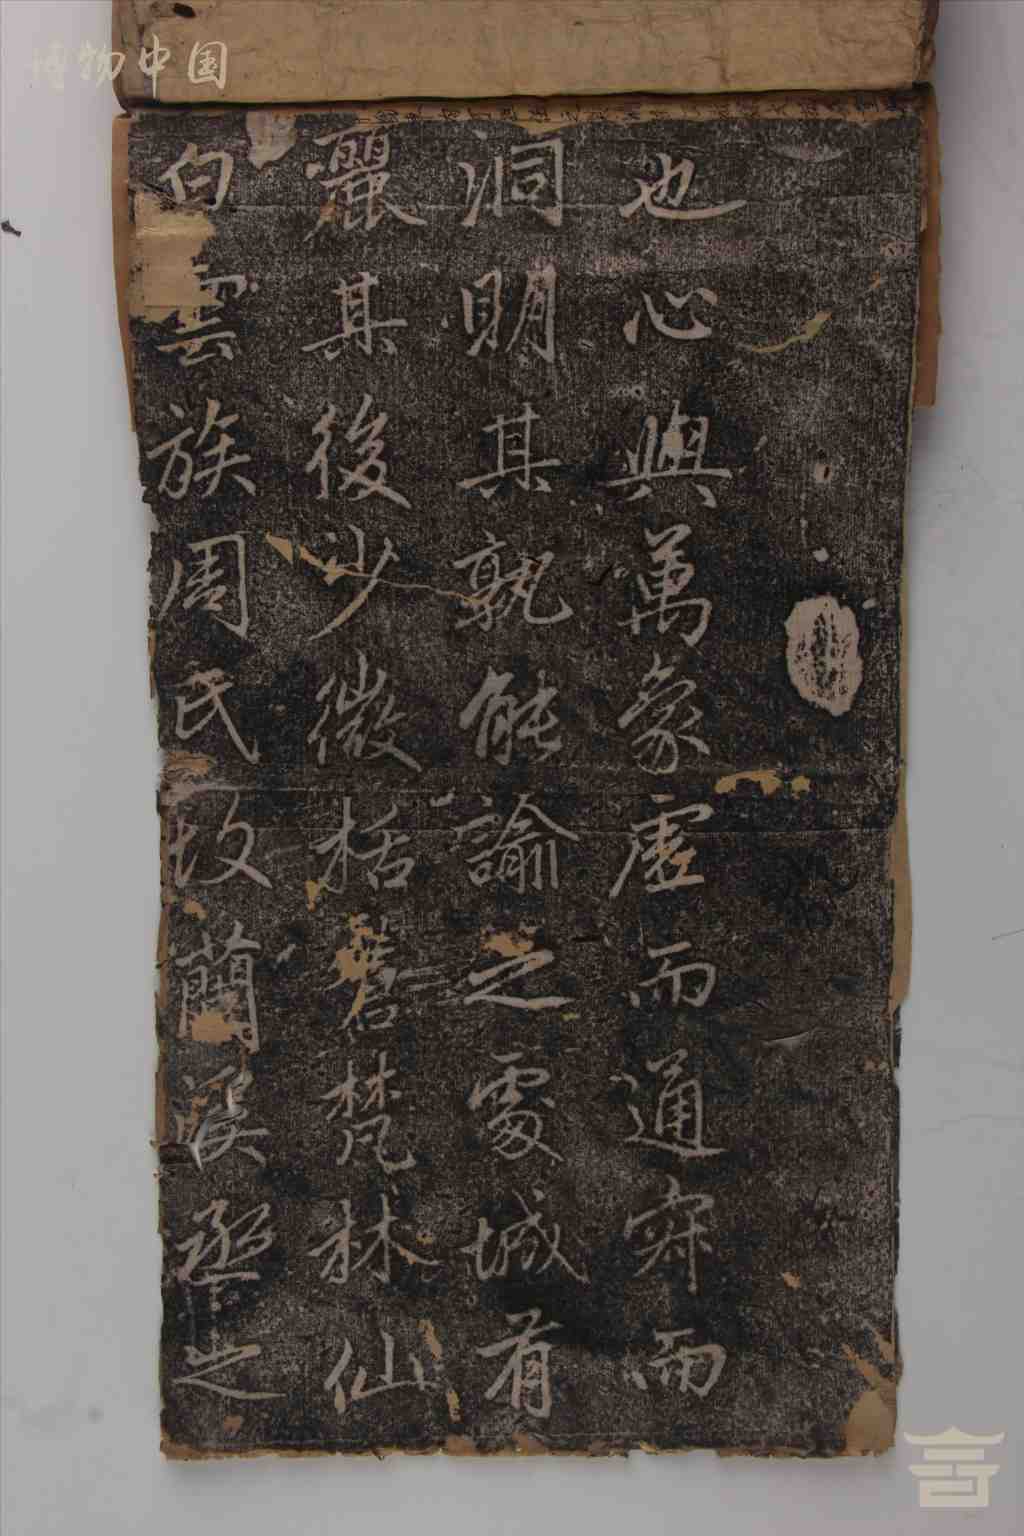 博物中国
也心與萬象虛而通寂而
洞明其孰能諭之處城有
麗其後沙微栝蒼梵林仙
白雲族周氏坆蘭溪丞之